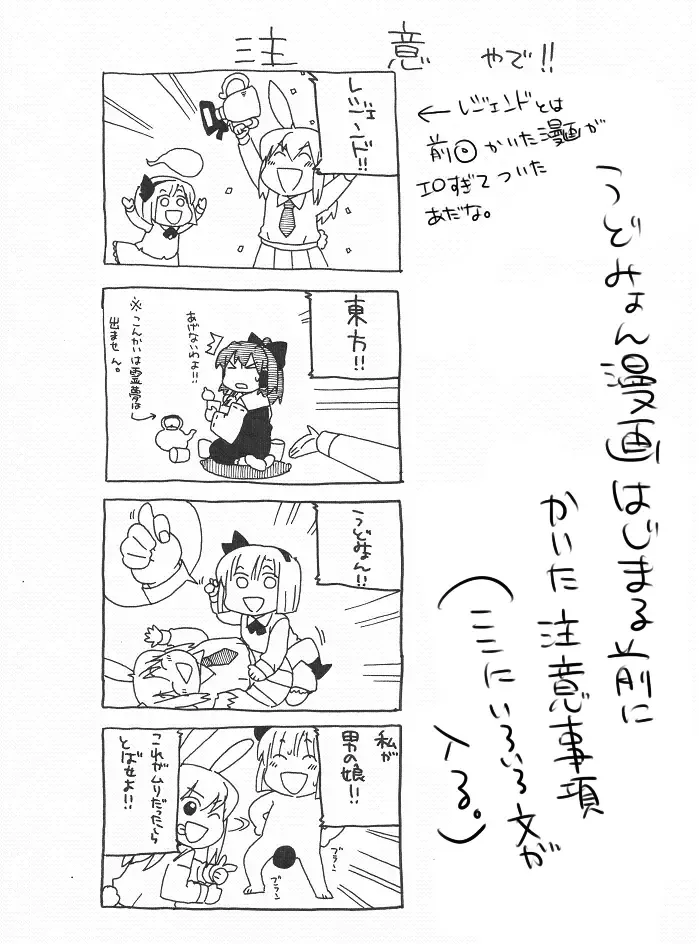 注意 やで!!
レジェンド!!
←レジェンドとは
前回かいた漫画が
エロすぎてついた
あだな。
うどみょん漫画はじまる前に
かいた注意事項
(ここにいろいろ文が
入る。)
東方!!
あげないわよ!!
※こんかいは霊夢は
出ません。
うどみょん!!
私が
男の娘!!
これがムリだったら
とばせよ!!
ブラン
ブラン